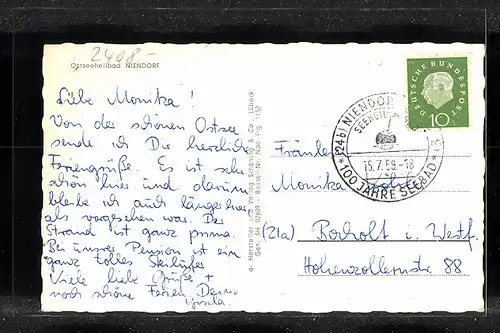 2408-
Ostseeheilbad NIENDORF
Liebe Monika!
Von der schönen Ostsee
sende ich Dir herzliche
Feriengrüße. Es ist sehr
schön hier und darum
bleibe ich auch länger hier
als vorgesehen war. Der
Strand ist ganz prima.
Bei unsrer Pension ist ein
ganz tolles
Viele liebe Grüße +
noch schöne Ferien Deine
Gisela
Hersteller und Verlag Schöning & Co., Lübeck
Gen. SH 02609 - Bestell-Nr.
DEUTSCHE BUNDESPOST
10
(24b) NIENDORF
15.7.59-18
100 JAHRE SEEBAD
Fräulein
Monika
(21a) Bocholt i. Westf.
Hohenzollernstr. 88